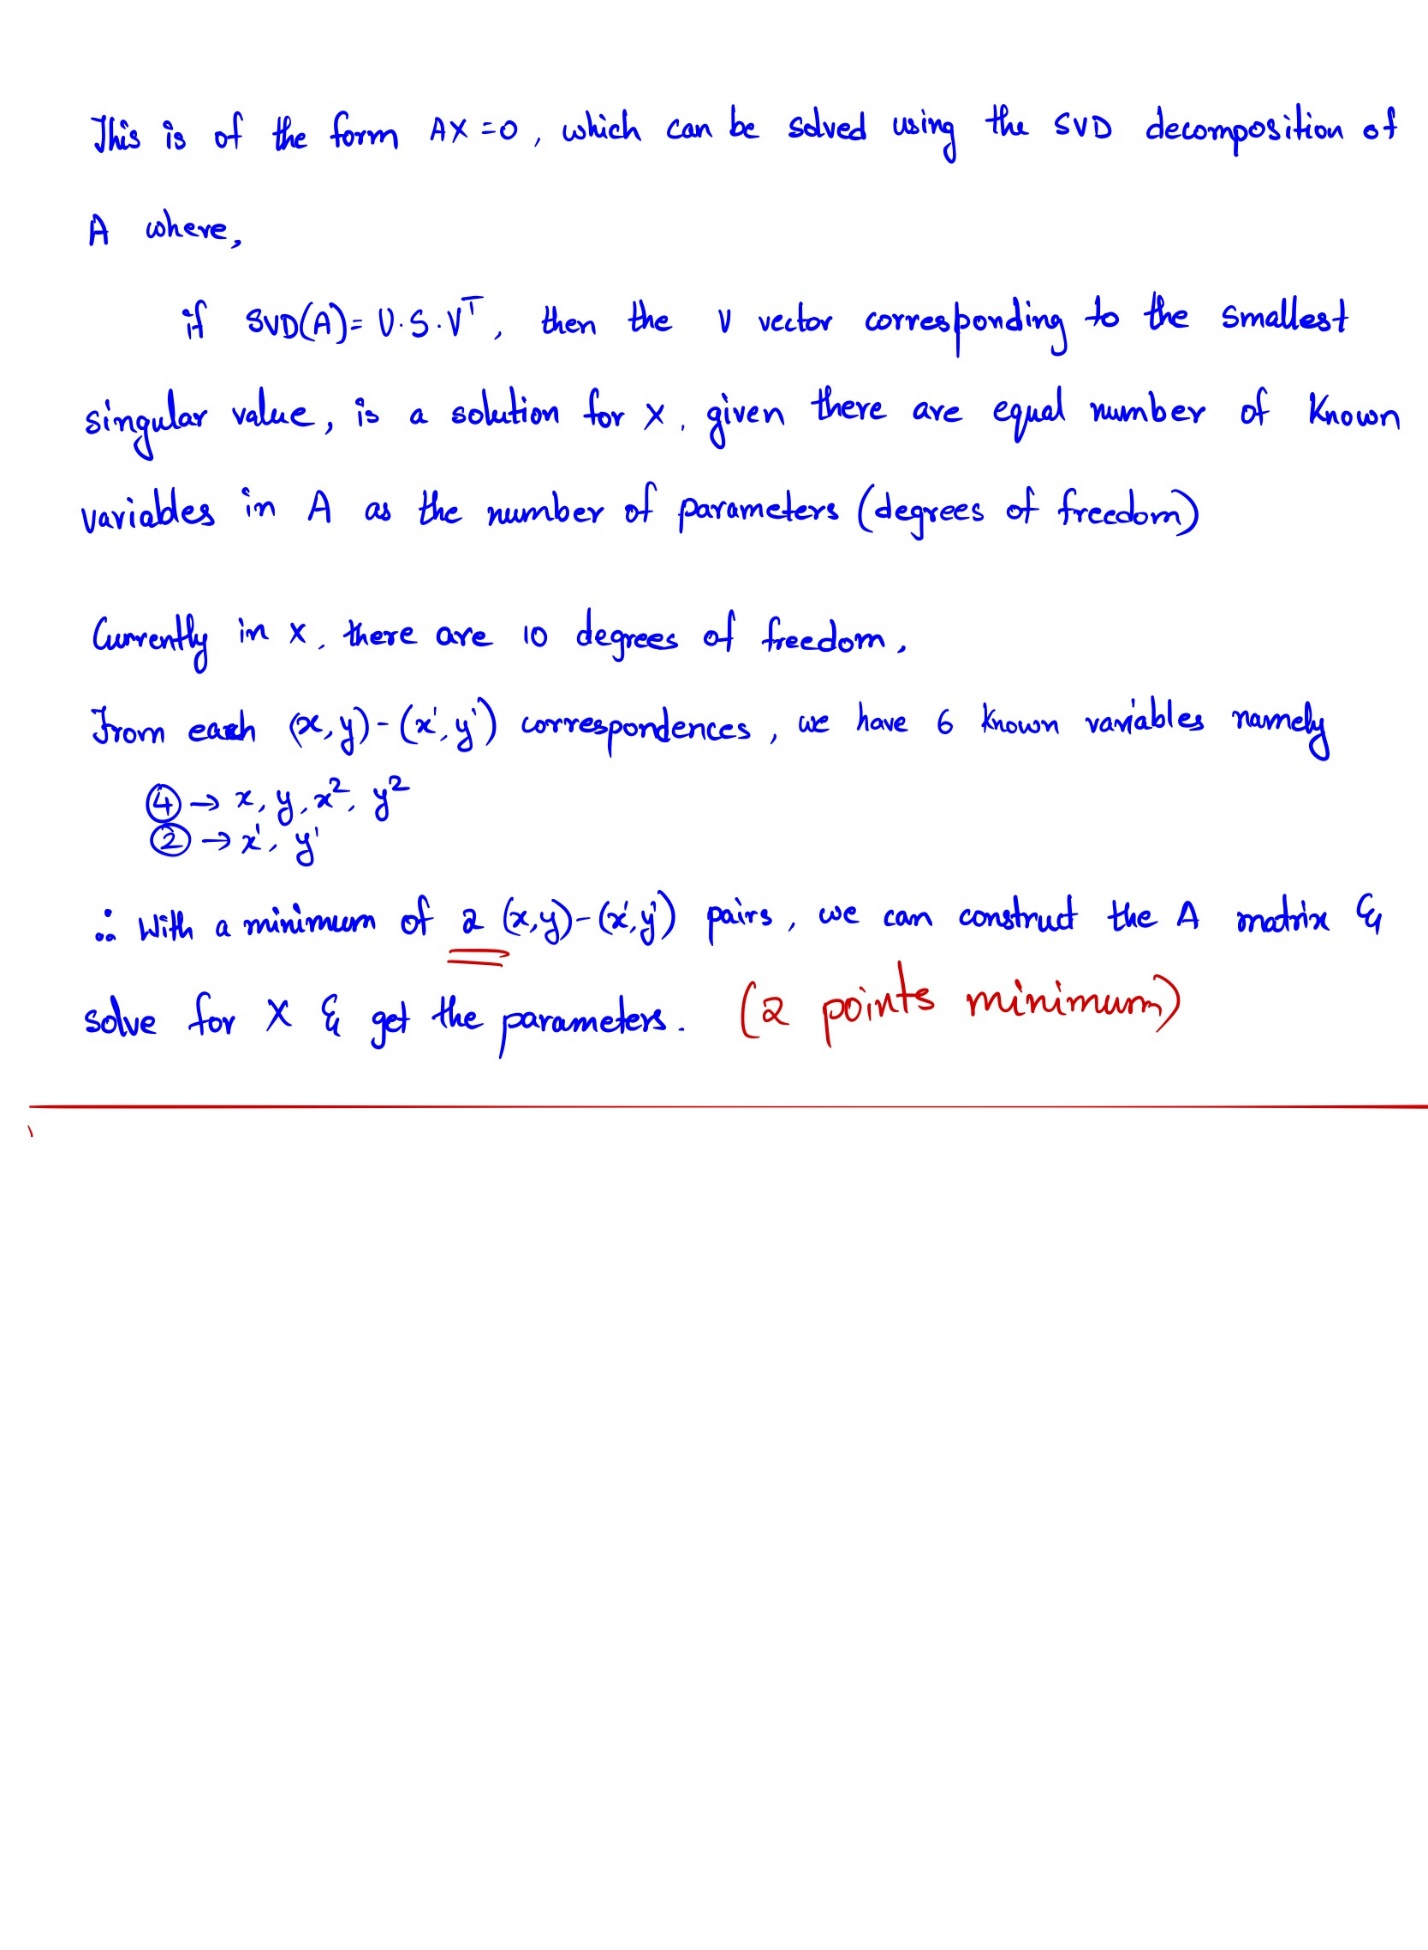 This is of the form AX=0, which can be solved using the SVD decomposition of
A where,
if SVD(A)= U·S·Vᵀ, then the v vector corresponding to the smallest
singular value, is a solution for x, given there are equal number of known
variables in A as the number of parameters (degrees of freedom)
Currently in x, there are 10 degrees of freedom,
From each (x,y)-(x',y') correspondences, we have 6 known variables namely
④ → x, y, x², y²
② → x', y'
∴ With a minimum of 2 (x,y)-(x',y') pairs, we can construct the A matrix &
solve for X & get the parameters. (2 points minimum)